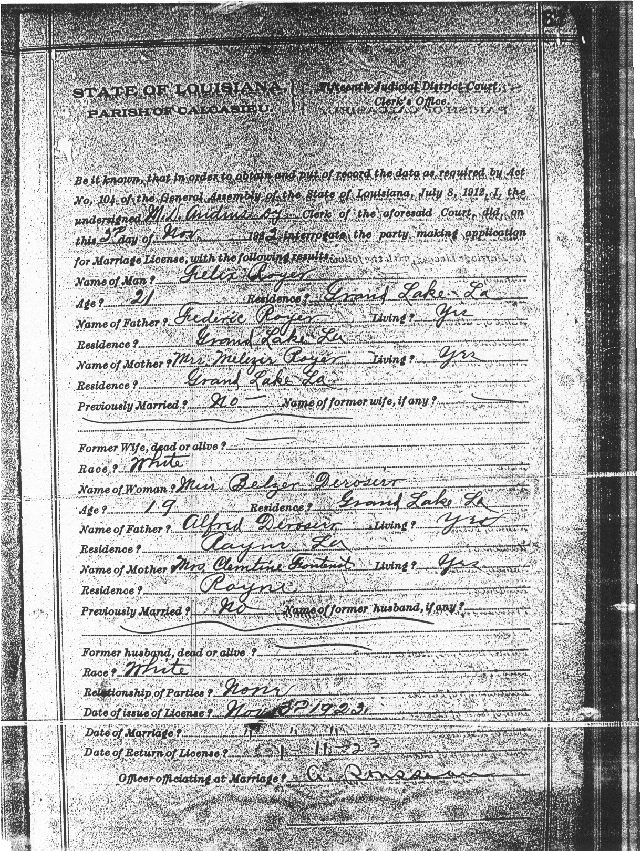 STATE OF LOUISIANA, Fifteenth Judicial District Court,
PARISH OF CALCASIEU. Clerk's Office.
Be it known, that in order to obtain and put of record the data as required by Act
No. 104 of the General Assembly of the State of Louisiana, July 8, 1912, I, the
undersigned Clerk of the aforesaid Court, did, on
this 3rd day of Nov. 192 interrogate the party making application
for Marriage License, with the following results:
Name of Man? Felix Royer
Age? 21 Residence? Grand Lake - La
Name of Father? Frederic Royer Living? Yes
Residence? Grand Lake La
Name of Mother? Mrs. Royer Living? Yes
Residence? Grand Lake La
Previously Married? No Name of former wife, if any?
Former Wife, dead or alive?
Race? White
Name of Woman? Miss Belzer
Age? 19 Residence? Grand Lake La
Name of Father? Alfred Living? Yes
Residence? Rayne La
Name of Mother? Mrs Clemtine Living? Yes
Residence? Rayne
Previously Married? No Name of former husband, if any?
Former husband, dead or alive?
Race? White
Relationship of Parties? None
Date of issue of License? Nov 3rd 1923.
Date of Marriage? " " "
Date of Return of License?
Officer officiating at Marriage?